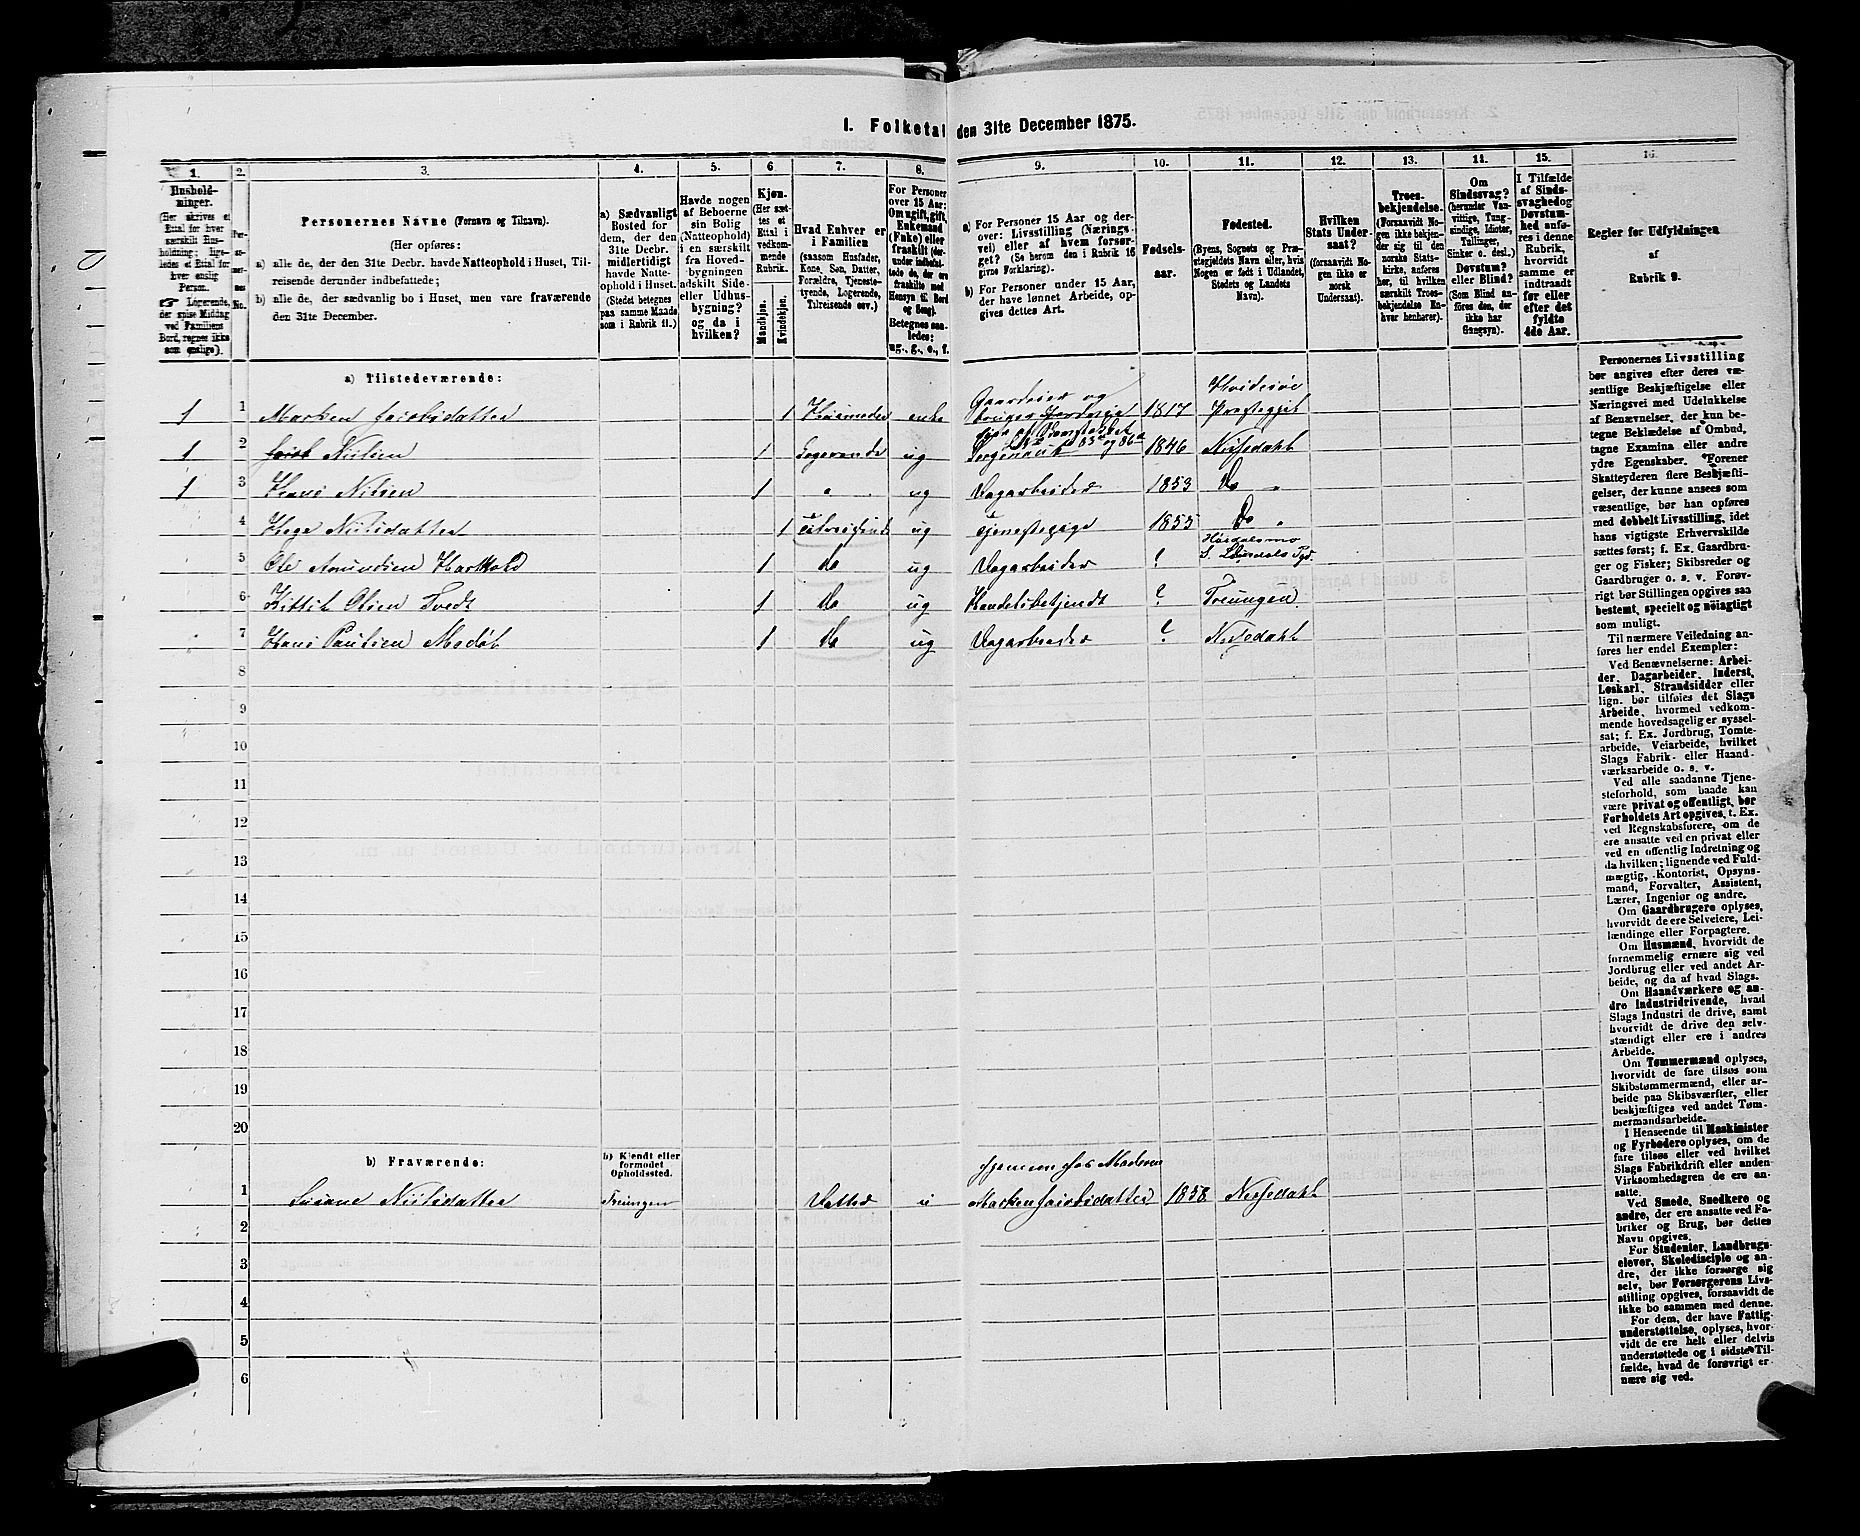 1. Folketal den 31te December 1875.
1.
2.
3.
4.
5.
6
7.
8.
9.
10.
11.
12.
13.
14.
15.
16.
Hushold-
ninger.
(Her skrives et
Ettal for hver
særskilt Hus-
holdning; lige-
ledes et Ettal for
hver enslig
Person.
☞ Logerende,
der spise Middag
ved Familiens
Bord, regnes ikke
som enslige).
Personernes No.
Personernes Navne (Fornavn og Tilnavn).
(Her opføres:
a) alle de, der den 31te Decbr. havde Natteophold i Huset, Til-
reisende derunder indbefattede;
b) alle de, der sædvanlig bo i Huset, men vare fraværende
den 31te December.
a) Sædvanligt
Bosted for
dem, der den
31te Decbr.
midlertidigt
havde Natte-
ophold i Huset.
(Stedet betegnes
paa samme Maade
som i Rubrik 11.)
Havde nogen
af Beboerne
sin Bolig
(Natteophold)
i en særskilt
fra Hoved-
bygningen
adskilt Side-
eller Udhus-
bygning?
og da i
hvilken?
Kjøn.
(Her sæt-
tes et
Ettal i
vedkom-
mende
Rubrik.
Mandkjøn.
Kvindekjøn.
Hvad Enhver er
i Familien
(saasom Husfader,
Kone, Søn, Datter,
Forældre, Tjeneste-
tyende, Logerende,
Tilreisende osv.)
For Personer
over 15 Aar:
Om ugift, gift,
Enkemand
(Enke) eller
fraskilt (der-
under indbefat-
tede de, der ere
fraskilte med
Hensyn til Bord
og Seng).
Betegnes saa-
ledes:
ug., g., e., f.
a) For Personer 15 Aar og der-
over: Livsstilling (Nærings-
vei) eller af hvem forsør-
get? (Se herom den i Rubrik 16
givne Forklaring).
b) For Personer under 15 Aar,
der have lønnet Arbeide, op-
gives dettes Art.
Fødsels-
aar.
Fødested.
(Byens, Sognets og Præ-
stegjeldets Navn eller, hvis
Nogen er født i Udlandet,
Stedets og Landets
Navn).
Hvilken
Stats Under-
saat?
(forsaavidt No-
gen ikke er
norsk
Undersaat).
Troes-
bekjendelse.
(Forsaavidt No-
gen ikke bekjen-
der sig til den
norske Stats-
kirke, anføres
her, til hvilken
særskilt Troes-
bekjendelse En-
hver henhører).
Om
Sindssvag?
(herunder Van-
vittige, Tung-
sindige, Idioter,
Tullinger,
Sinker o. desl.)
Døvstum?
eller Blind?
(Som Blind an-
føres den, der
ikke har
Gangsyn).
I Tilfælde
af Sinds-
svaghed og
Døvstum-
hed anfø-
res i denne
Rubrik,
hvorvidt
samme er
indtraadt
før eller
efter det
fyldte
4de Aar.
Regler for Udfyldningen
af
Rubrik 9.
a) Tilstedeværende:
1 1 Marken Jacobsdatter 1 Huusmoder enke Gaardeier og 1817 Hvidesøe Præstegjel
1 2 Nilsen 1 Logerende ug 1846 Nissedahl
1 3 Hans Nilsen 1 " ug Dagarbeider 1853 Do "
4 Hege Nilsdatter 1 ug Tjenestepige 1855 Do "
5 Ole Amundsen 1 do ug Dagarbeider ?
6 Kittil Olsen Tvedt 1 do ug Handelsbetjendt ? Treungen
7 Hans Paulsen 1 do ug Dagarbeider ? Nissedahl
8
9
10
11
12
13
14
15
16
17
18
19
20
b) Fraværende:
b) Kjendt eller
formodet
Opholdssted.
1 Nilsdatter Treungen Datter u Hjemme hos Moderen
Marken Jacobsdatter 1858 Nissedahl
2
3
4
5
6
Personernes Livsstilling
bør angives efter deres væ-
sentlige Beskjæftigelse eller
Næringsvei med Udelukkelse
af Benævnelser, der kun be-
tegne Beklædelse af Ombud,
tagne Examina eller andre
ydre Egenskaber. Forener
Skatteyderen flere Beskjæfti-
gelser, der kunne ansees som
væsentlige, bør han opføres
med dobbelt Livsstilling, idet
hans vigtigste Erhvervskilde
sættes først; f. Ex. Gaardbru-
ger og Fisker; Skibsreder og
Gaardbruger o. s. v. Forøv-
rigt bør Stillingen opgives saa
bestemt, specielt og nøiagtigt
som muligt.
Til nærmere Veiledning an-
føres her endel Exempler:
Ved Benævnelserne: Arbei-
der, Dagarbeider, Inderst,
Løskarl, Strandsidder eller
lign. bør tilføies det Slags
Arbeide, hvormed vedkom-
mende hovedsagelig er syssel-
sat; f. Ex. Jordbrug, Tomte-
arbeide, Veiarbeide, hvilket
Slags Fabrik- eller Haand-
værksarbeide o. s. v.
Ved alle saadanne Tjene-
steforhold, som baade kan
være privat og offentligt, bør
Forholdets Art opgives, t. Ex.
ved Regnskabsførere, om de
ere ansatte ved en privat eller
ved en offentlig Indretning og
da hvilken; lignende ved Fuld-
mægtig, Kontorist, Opsyns-
mand, Forvalter, Assistent,
Lærer, Ingeniør og andre.
Om Gaardbrugere oplyses,
hvorvidt de ere Selveiere, Lei-
lændinge eller Forpagtere.
Om Husmænd, hvorvidt de
fornemmelig ernære sig ved
Jordbrug eller ved andet Ar-
beide, og da af hvad Slags.
Om Haandværkere og an-
dre Industridrivende, hvad
Slags Industri de drive, samt
hvorvidt de drive den selv-
stændigt eller ere i andres
Arbeide.
Om Tømmermænd oplyses,
hvorvidt de fare tilsøs som
Skibstømmermænd, eller ar-
beide paa Skibsværfter, eller
beskjæftiges ved andet Tøm-
mermandsarbeide.
I Henseende til Maskinister
og Fyrbødere oplyses, om de
fare tilsøs eller ved hvilket
Slags Fabrikdrift eller anden
Virksomhed de ere an-
satte.
Ved Smede, Snedkere og
andre, der ere ansatte ved Fa-
briker og Brug, bør dettes
Navn opgives.
For Studenter, Landbrugs-
elever, Skoledisciple og an-
dre, der ikke forsørge sig
selv, bør Forsørgerens Livs-
stilling opgives, forsaavidt de
ikke bo sammen med denne.
For dem, der have Fattig-
understøttelse, oplyses, hvor-
vidt de ere helt eller delvis
understøttede og i sidste Til-
fælde, hvad de forøvrigt er-
nære sig ved.